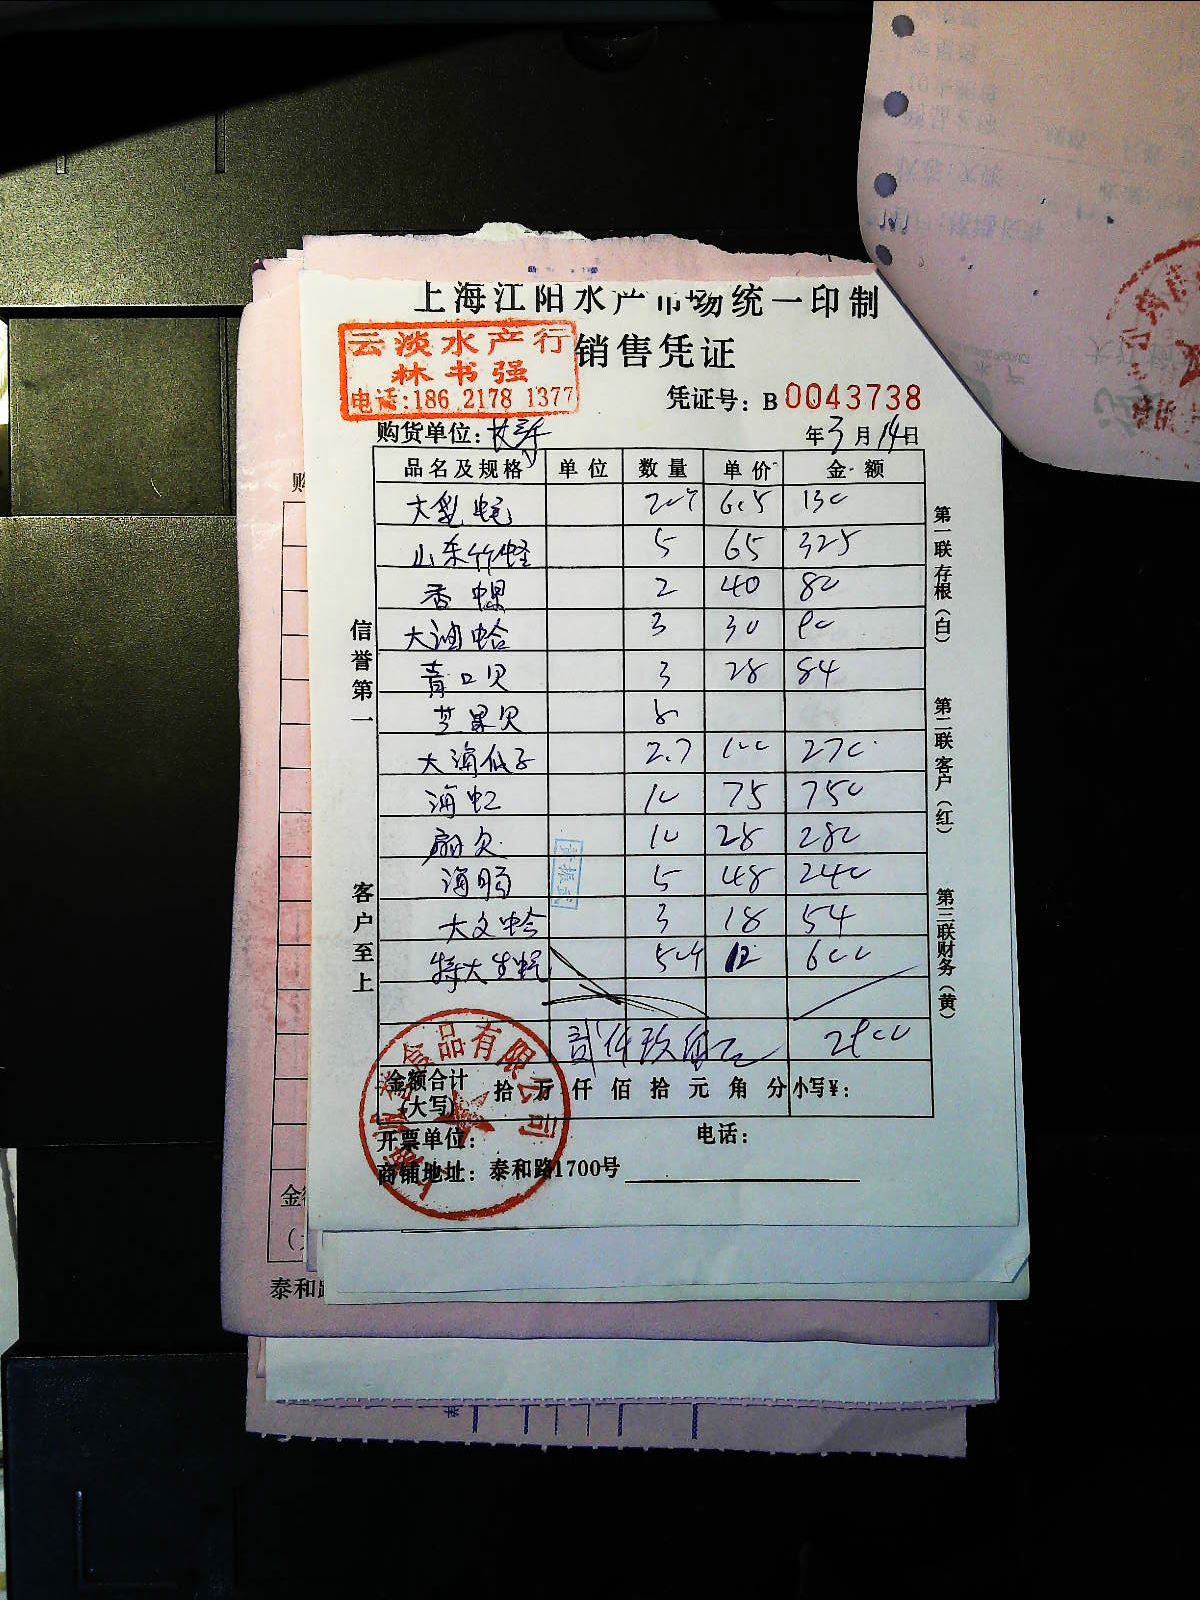 上海江阳水产市场统一印制
云淡水产行
林书强
电话:186 2178 1377
销售凭证
凭证号: B 0043738
购货单位:
年 3 月 14 日
品名及规格 单位 数量 单价 金额
大乳蚝 20个 6.5 130
山东竹蛏 5 65 325
香螺 2 40 80
大油蛤 3 30 90
青口贝 3 28 84
芒果贝 8
大海低子 2.7 100 270
海虹 10 75 750
扇贝 10 28 280
海肠 5 48 240
大文蛤 3 18 54
特大生蚝 50个 12 600
贰仟玖佰元 2900
金额合计
(大写) 拾 万 仟 佰 拾 元 角 分 小写¥:
开票单位: 电话:
商铺地址: 泰和路1700号
信誉第一
客户至上
第一联 存根（白）
第二联 客户（红）
第三联 财务（黄）
食品有限公司
购
泰和